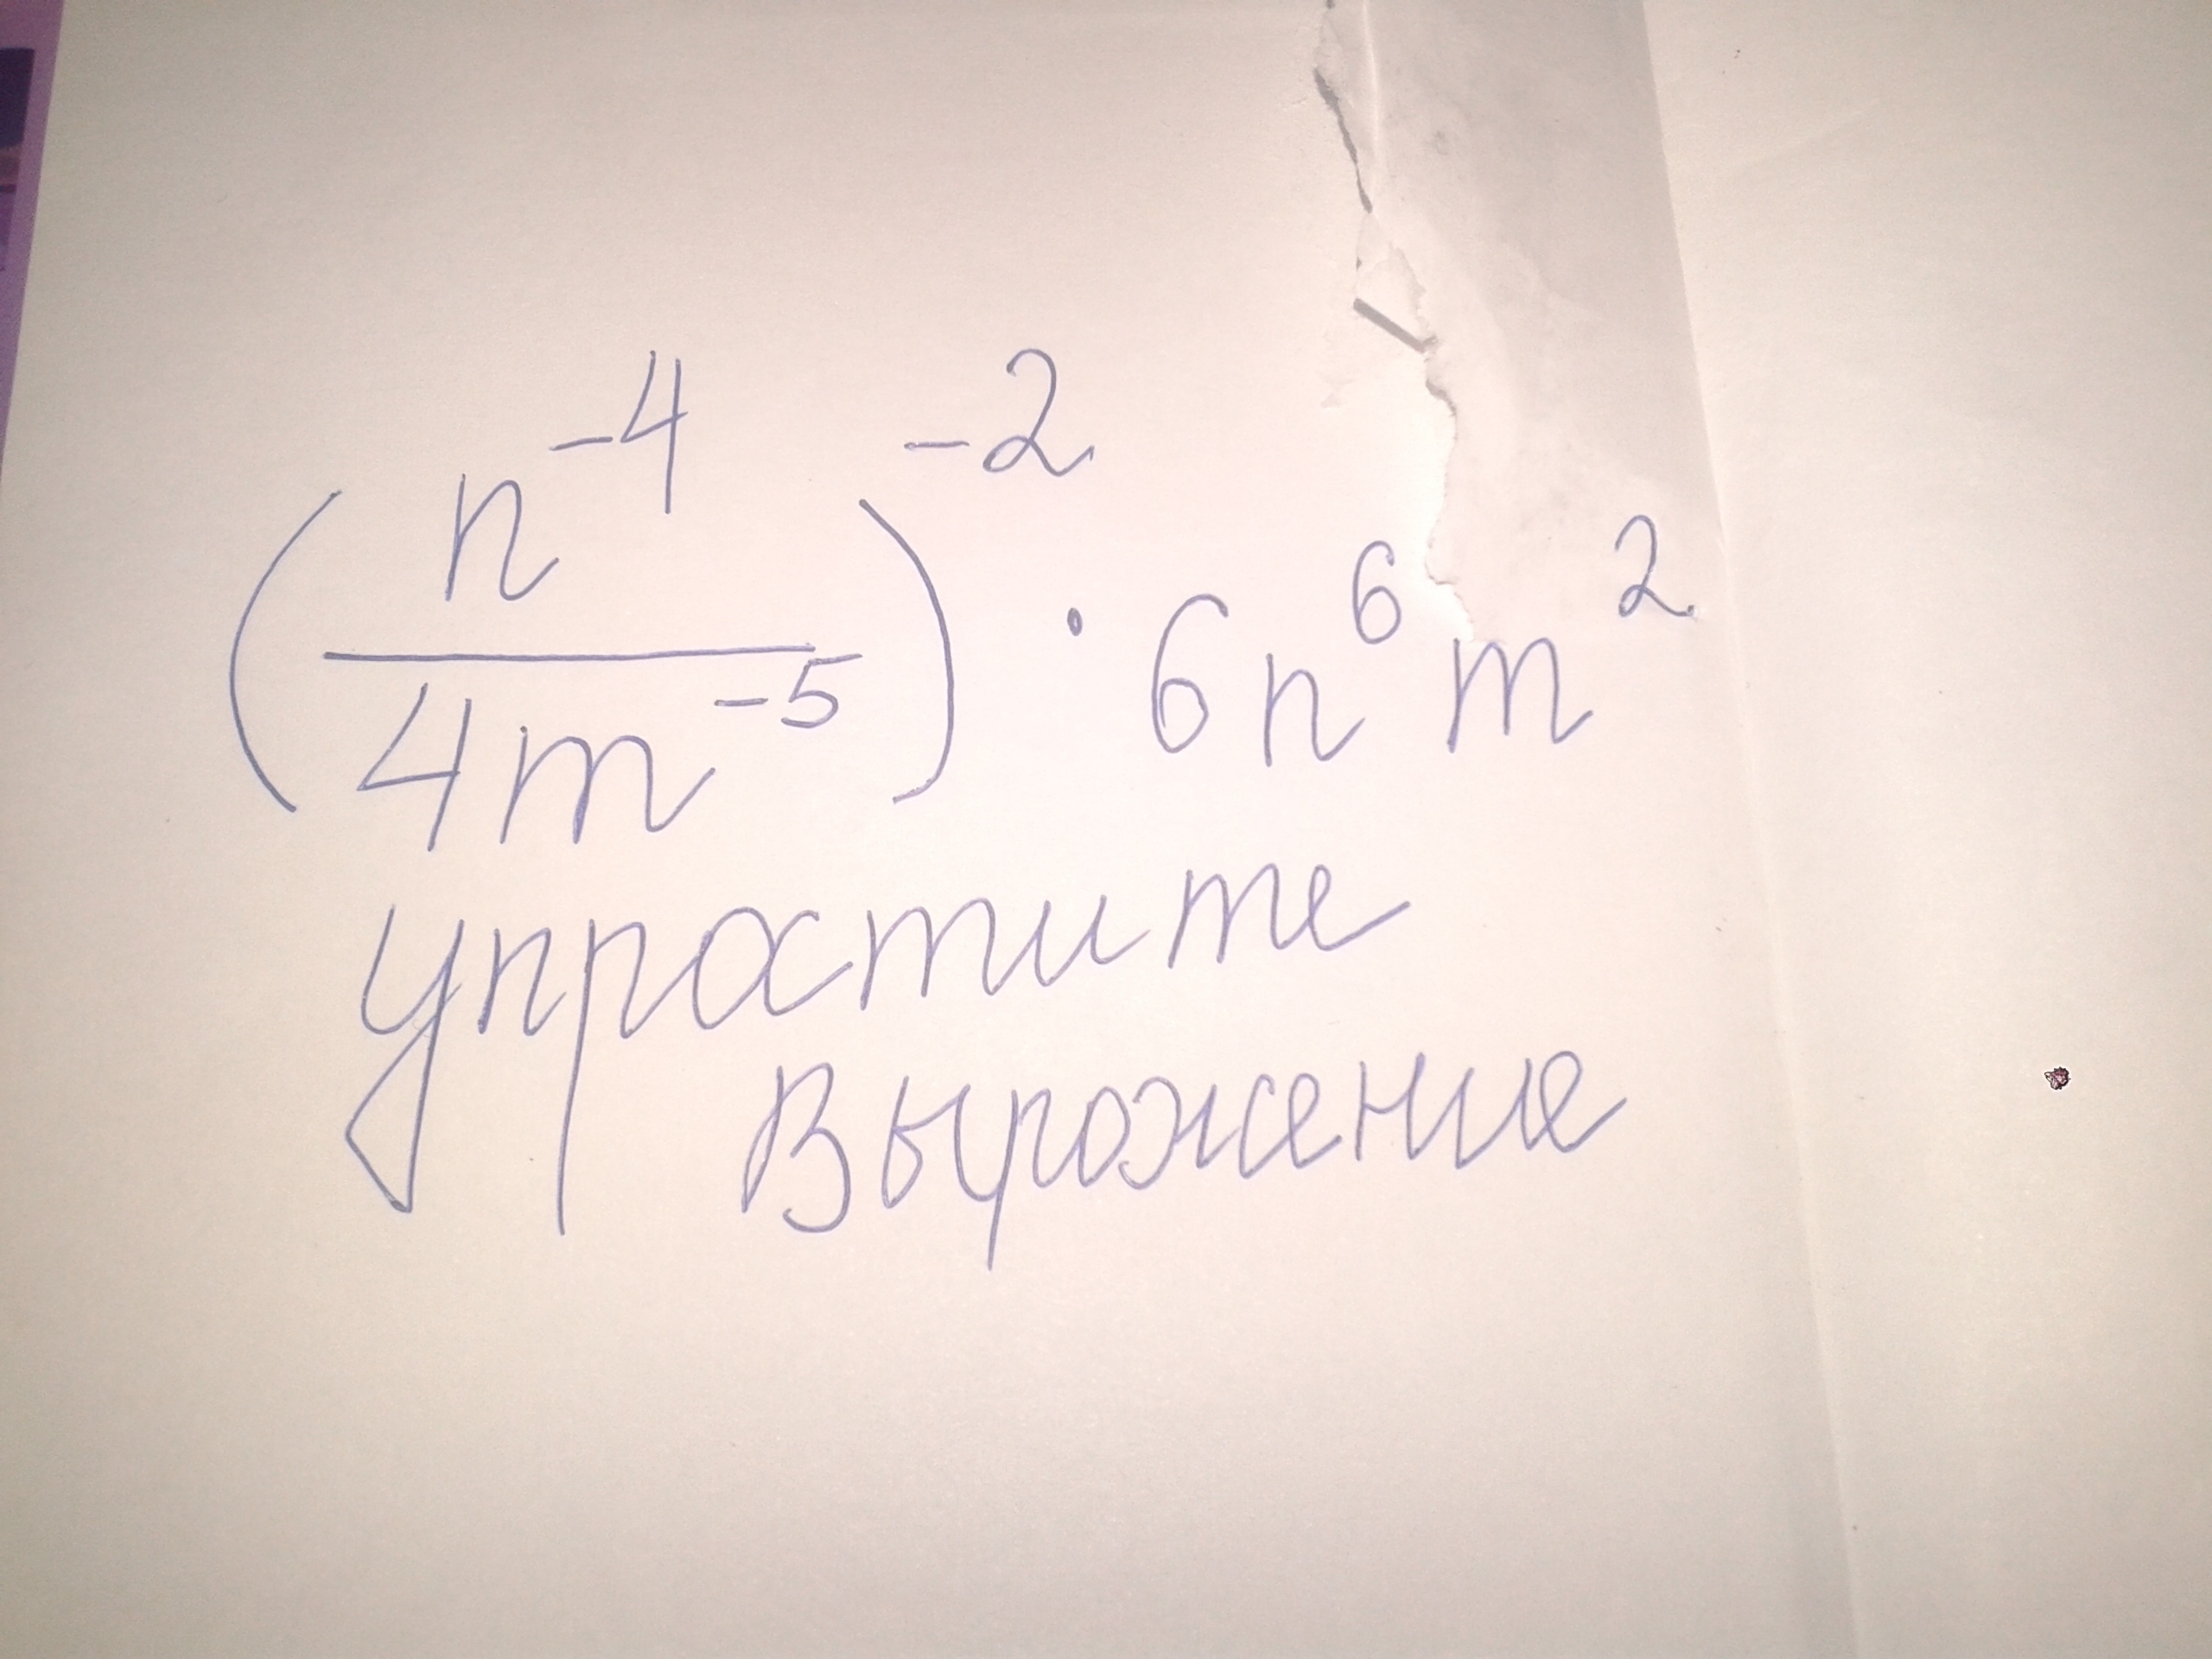 (n⁻⁴ / 4m⁻⁵)⁻² · 6n⁶m²
упростите
выражение